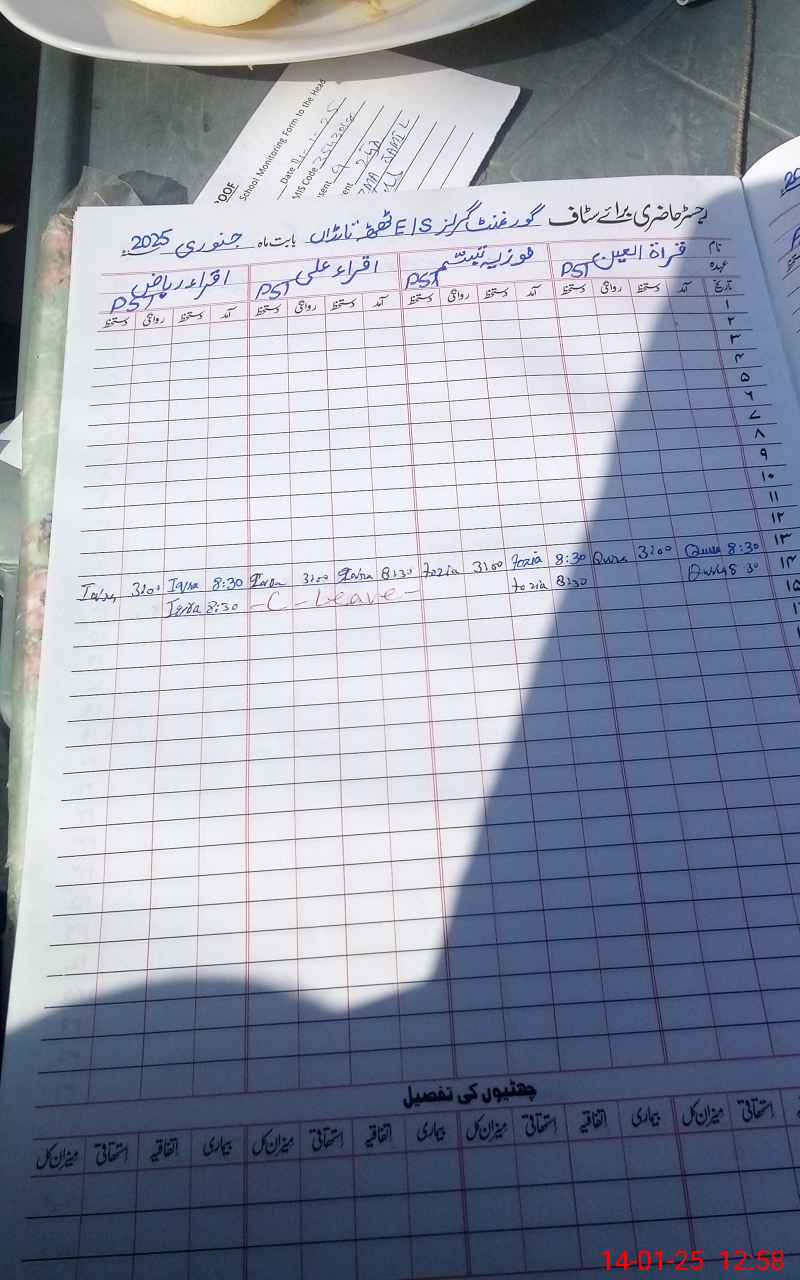 OOF
School Monitoring Form to the Head
Date
MIS Code
رجسٹر حاضری برائے سٹاف گورنمنٹ گرلز E/S ٹھٹھہ ناڑاں بابت ماہ جنوری 2025
نام قراۃ العین فوزیہ تبسم اقراء علی اقراء ریاض
عہدہ PST PST PST PST
تاریخ آمد دستخط روانگی دستخط آمد دستخط روانگی دستخط آمد دستخط روانگی دستخط آمد دستخط روانگی دستخط
۱
۲
۳
۴
۵
۶
۷
۸
۹
۱۰
۱۱
۱۲
Iqra 3:00 Iqra 8:30 Iqra 3:00 Iqra 8:30 fozia 3:00 fozia 8:30 Qura 3:00 Qura 8:30 ۱۳
Iqra 8:30 - C - Leave - fozia 8:30 8 30 ۱۴
۱۵
چھٹیوں کی تفصیل
میزان کل استحقاقی اتفاقیہ بیماری میزان کل استحقاقی اتفاقیہ بیماری میزان کل استحقاقی اتفاقیہ بیماری میزان کل استحقاقی
14-01-25 12:58